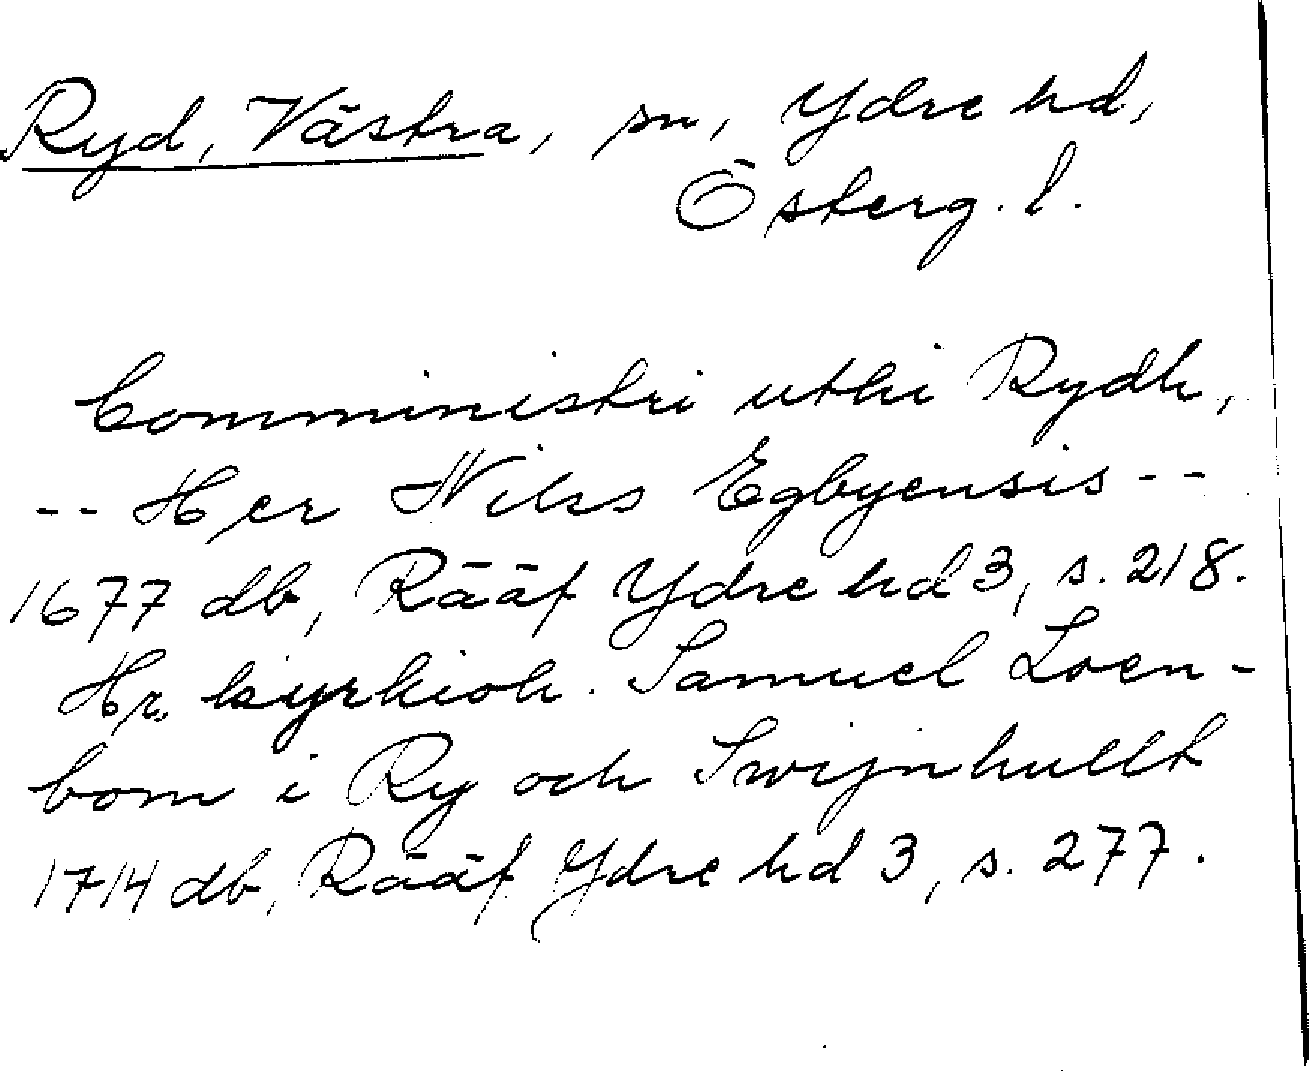 Ryd, Västra, sn, Ydre hd,
Österg. l.
Comministri uthi Rydh,
-- Her Nilss Egbyensis --
1677 db, Rääf Ydre hd 3, s. 218.
Hr. kyrkioh. Samuel Loen-
bom i Ry och Swijnhullt
1714 db, Rääf Ydre hd 3, s. 277.